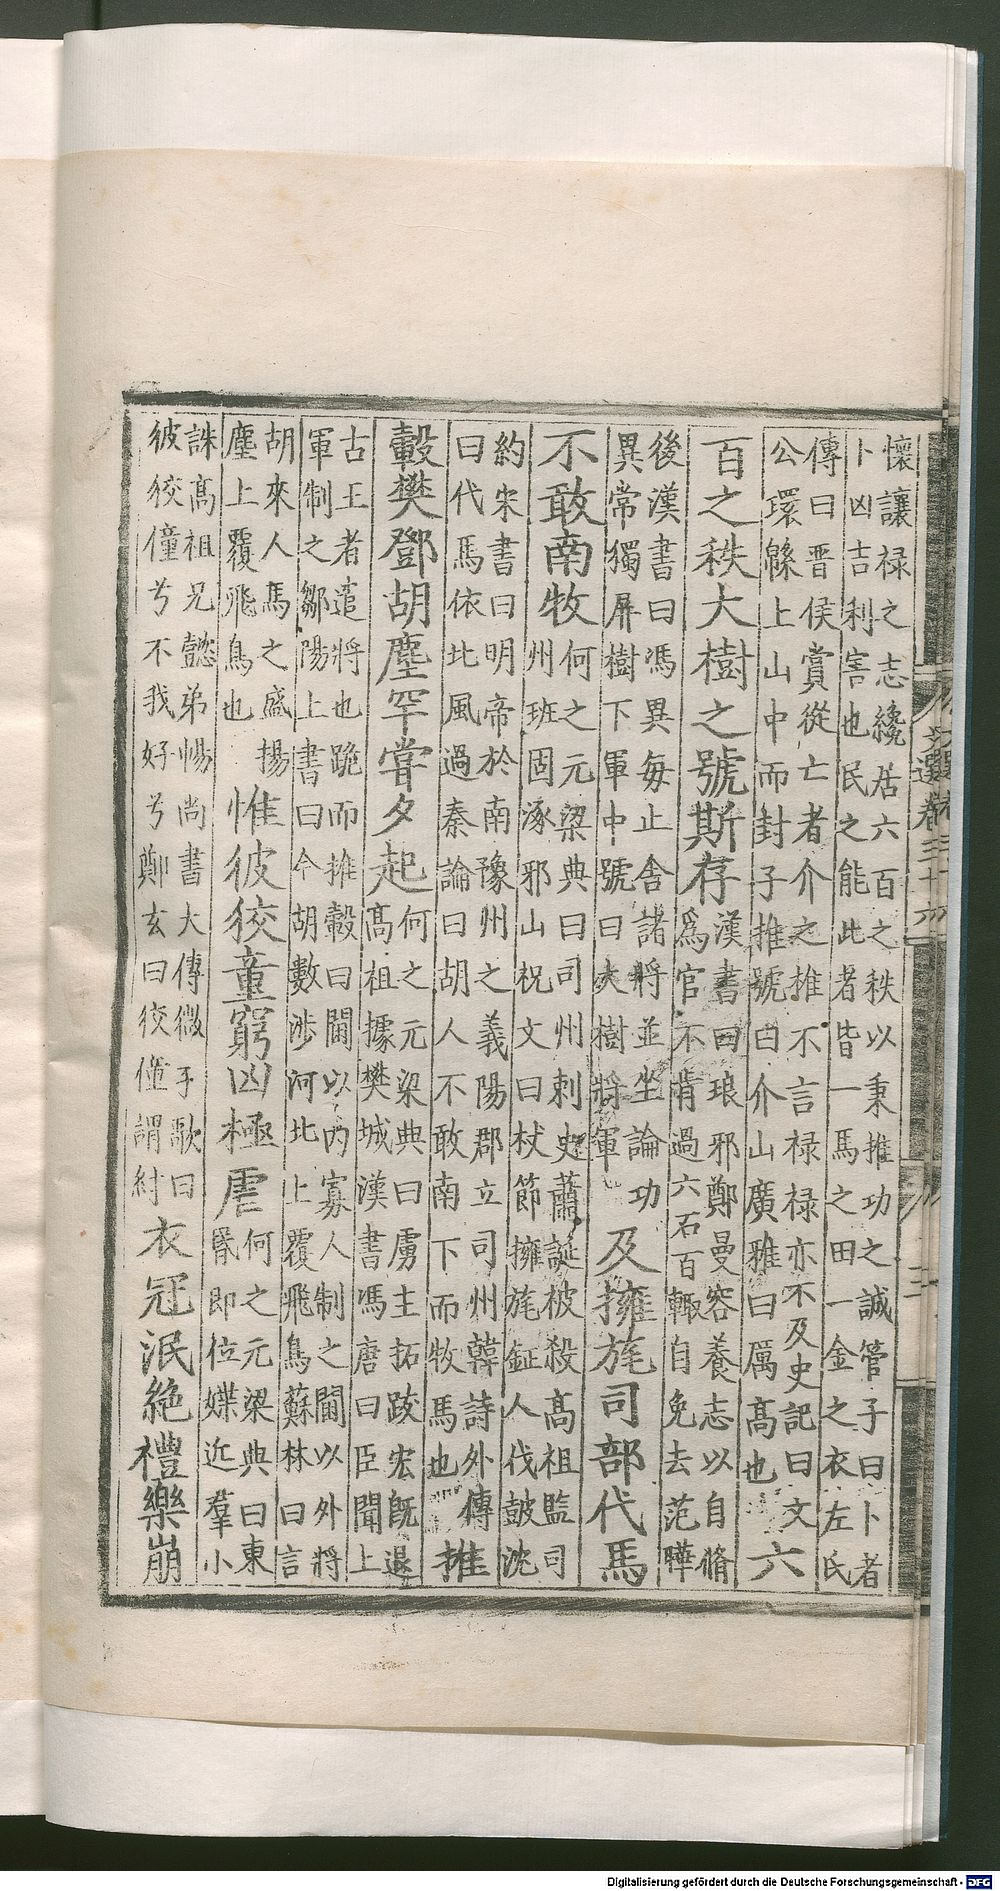 懷讓禄之志纔居六百之秩以秉推功之誠管子曰卜者
卜凶吉利害也民之能此者皆一馬之田一金之衣左氏
傳曰晋侯賞從亡者介之推不言禄禄亦不及史記曰文
公環緜上山中而封子推號曰介山廣雅曰厲高也
六
百之秩大樹之號斯存
漢書曰琅邪鄭曼容養志以自脩
爲官不肯過六石百輙自免去范曄
後漢書曰馮異每止舎諸將並坐論功
異常獨屏樹下軍中號曰大樹將軍
及擁旄司部代馬
不敢南牧
何之元梁典曰司州刺史蕭誕被殺高祖監司
州班固涿邪山祝文曰杖節擁旄鉦人伐鼓沈
約宋書曰明帝於南豫州之義陽郡立司州韓詩外傳
曰代馬依北風過秦論曰胡人不敢南下而牧馬也
推
轂樊鄧胡塵罕嘗夕起
何之元梁典曰虜主拓跋宏旣退
高祖據樊城漢書馮唐曰臣聞上
古王者遣將也跪而推轂曰閫以内寡人制之閫以外將
軍制之鄒陽上書曰今胡數涉河北上覆飛鳥蘇林曰言
胡來人馬之盛揚
塵上覆飛鳥也
惟彼狡童窮凶極虐
何之元梁典曰東
昬即位媟近羣小
誅高祖兄懿弟暢尚書大傳微子歌曰
彼狡僮兮不我好兮鄭玄曰狡僮謂紂
衣冠泯絶禮樂崩
文選卷三十六
三
Digitalisierung gefördert durch die Deutsche Forschungsgemeinschaft - DFG